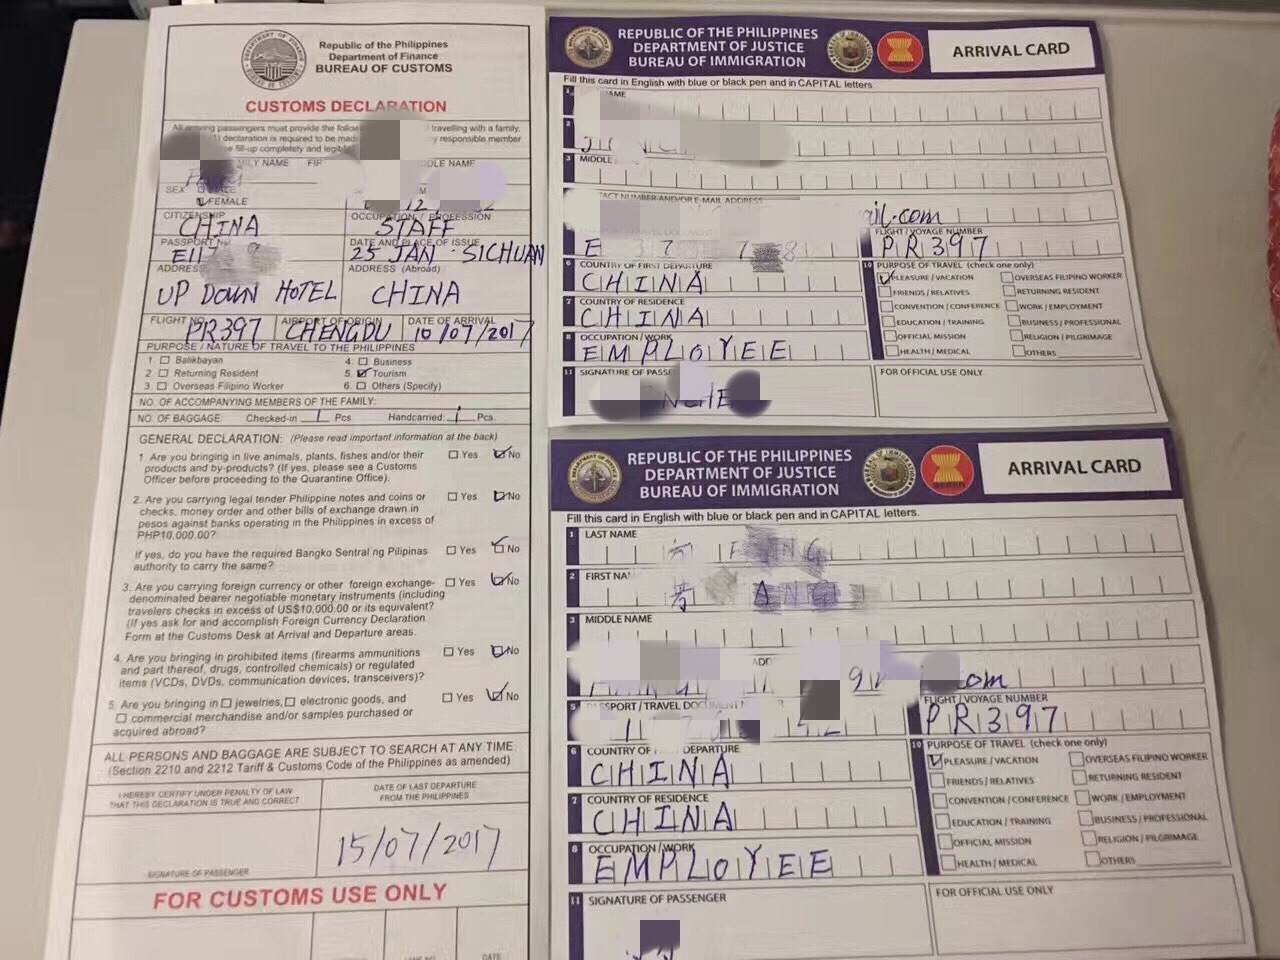 Republic of the Philippines
Department of Finance
BUREAU OF CUSTOMS
CUSTOMS DECLARATION
All arriving passengers must provide the follow travelling with a family,
declaration is required to be made responsible member
fill-up completely and legibl
MILY NAME FIR DDLE NAME
SEX
FEMALE
CITIZENSHIP OCCUPATION / PROFESSION
CHINA STAFF
PASSPORT DATE AND PLACE OF ISSUE
25 JAN · SICHUAN
ADDRESS ADDRESS (Abroad)
UP DOWN HOTEL CHINA
FLIGHT NO. AIRPORT OF ORIGIN DATE OF ARRIVAL
PR397 CHENGDU 10/07/2017
PURPOSE / NATURE OF TRAVEL TO THE PHILIPPINES
1 Balikbayan 4. Business
2 Returning Resident 5. Tourism
3. Overseas Filipino Worker 6. Others (Specify)
NO. OF ACCOMPANYING MEMBERS OF THE FAMILY:
NO. OF BAGGAGE: Checked-in 1 Pcs Handcarried: 1 Pcs.
GENERAL DECLARATION: (Please read important information at the back)
1. Are you bringing in live animals, plants, fishes and/or their Yes No
products and by-products? (If yes, please see a Customs
Officer before proceeding to the Quarantine Office).
2. Are you carrying legal tender Philippine notes and coins or Yes No
checks, money order and other bills of exchange drawn in
pesos against banks operating in the Philippines in excess of
PHP10,000.00?
If yes, do you have the required Bangko Sentral ng Pilipinas Yes No
authority to carry the same?
3. Are you carrying foreign currency or other foreign exchange- Yes No
denominated bearer negotiable monetary instruments (including
travelers checks in excess of US$10,000.00 or its equivalent?
(If yes ask for and accomplish Foreign Currency Declaration
Form at the Customs Desk at Arrival and Departure areas.
4. Are you bringing in prohibited items (firearms ammunitions Yes No
and part thereof, drugs, controlled chemicals) or regulated
items (VCDs, DVDs, communication devices, transceivers)?
5. Are you bringing in jewelries, electronic goods, and Yes No
commercial merchandise and/or samples purchased or
acquired abroad?
ALL PERSONS AND BAGGAGE ARE SUBJECT TO SEARCH AT ANY TIME
(Section 2210 and 2212 Tariff & Customs Code of the Philippines as amended)
I HEREBY CERTIFY UNDER PENALTY OF LAW DATE OF LAST DEPARTURE
THAT THIS DECLARATION IS TRUE AND CORRECT FROM THE PHILIPPINES
15/07/2017
SIGNATURE OF PASSENGER
FOR CUSTOMS USE ONLY
DATE
REPUBLIC OF THE PHILIPPINES
DEPARTMENT OF JUSTICE
BUREAU OF IMMIGRATION
ARRIVAL CARD
Fill this card in English with blue or black pen and in CAPITAL letters.
3 MIDDLE
TACT NUMBER AND/OR E-MAIL ADDRESS
ail.com
FLIGHT / VOYAGE NUMBER
PR397
6 COUNTRY OF FIRST DEPARTURE
CHINA
7 COUNTRY OF RESIDENCE
CHINA
8 OCCUPATION / WORK
EMPLOYEE
10 PURPOSE OF TRAVEL (check one only)
PLEASURE / VACATION OVERSEAS FILIPINO WORKER
FRIENDS / RELATIVES RETURNING RESIDENT
CONVENTION / CONFERENCE WORK / EMPLOYMENT
EDUCATION / TRAINING BUSINESS / PROFESSIONAL
OFFICIAL MISSION RELIGION / PILGRIMAGE
HEALTH / MEDICAL OTHERS
11 SIGNATURE OF PASSE FOR OFFICIAL USE ONLY
REPUBLIC OF THE PHILIPPINES
DEPARTMENT OF JUSTICE
BUREAU OF IMMIGRATION
ARRIVAL CARD
Fill this card in English with blue or black pen and in CAPITAL letters.
1 LAST NAME
2 FIRST NA
3 MIDDLE NAME
com
5 PASSPORT / TRAVEL DOCUMENT N
FLIGHT / VOYAGE NUMBER
PR397
6 COUNTRY OF DEPARTURE
CHINA
7 COUNTRY OF RESIDENCE
CHINA
8 OCCUPATION / WORK
EMPLOYEE
10 PURPOSE OF TRAVEL (check one only)
PLEASURE / VACATION OVERSEAS FILIPINO WORKER
FRIENDS / RELATIVES RETURNING RESIDENT
CONVENTION / CONFERENCE WORK / EMPLOYMENT
EDUCATION / TRAINING BUSINESS / PROFESSIONAL
OFFICIAL MISSION RELIGION / PILGRIMAGE
HEALTH / MEDICAL OTHERS
11 SIGNATURE OF PASSENGER FOR OFFICIAL USE ONLY